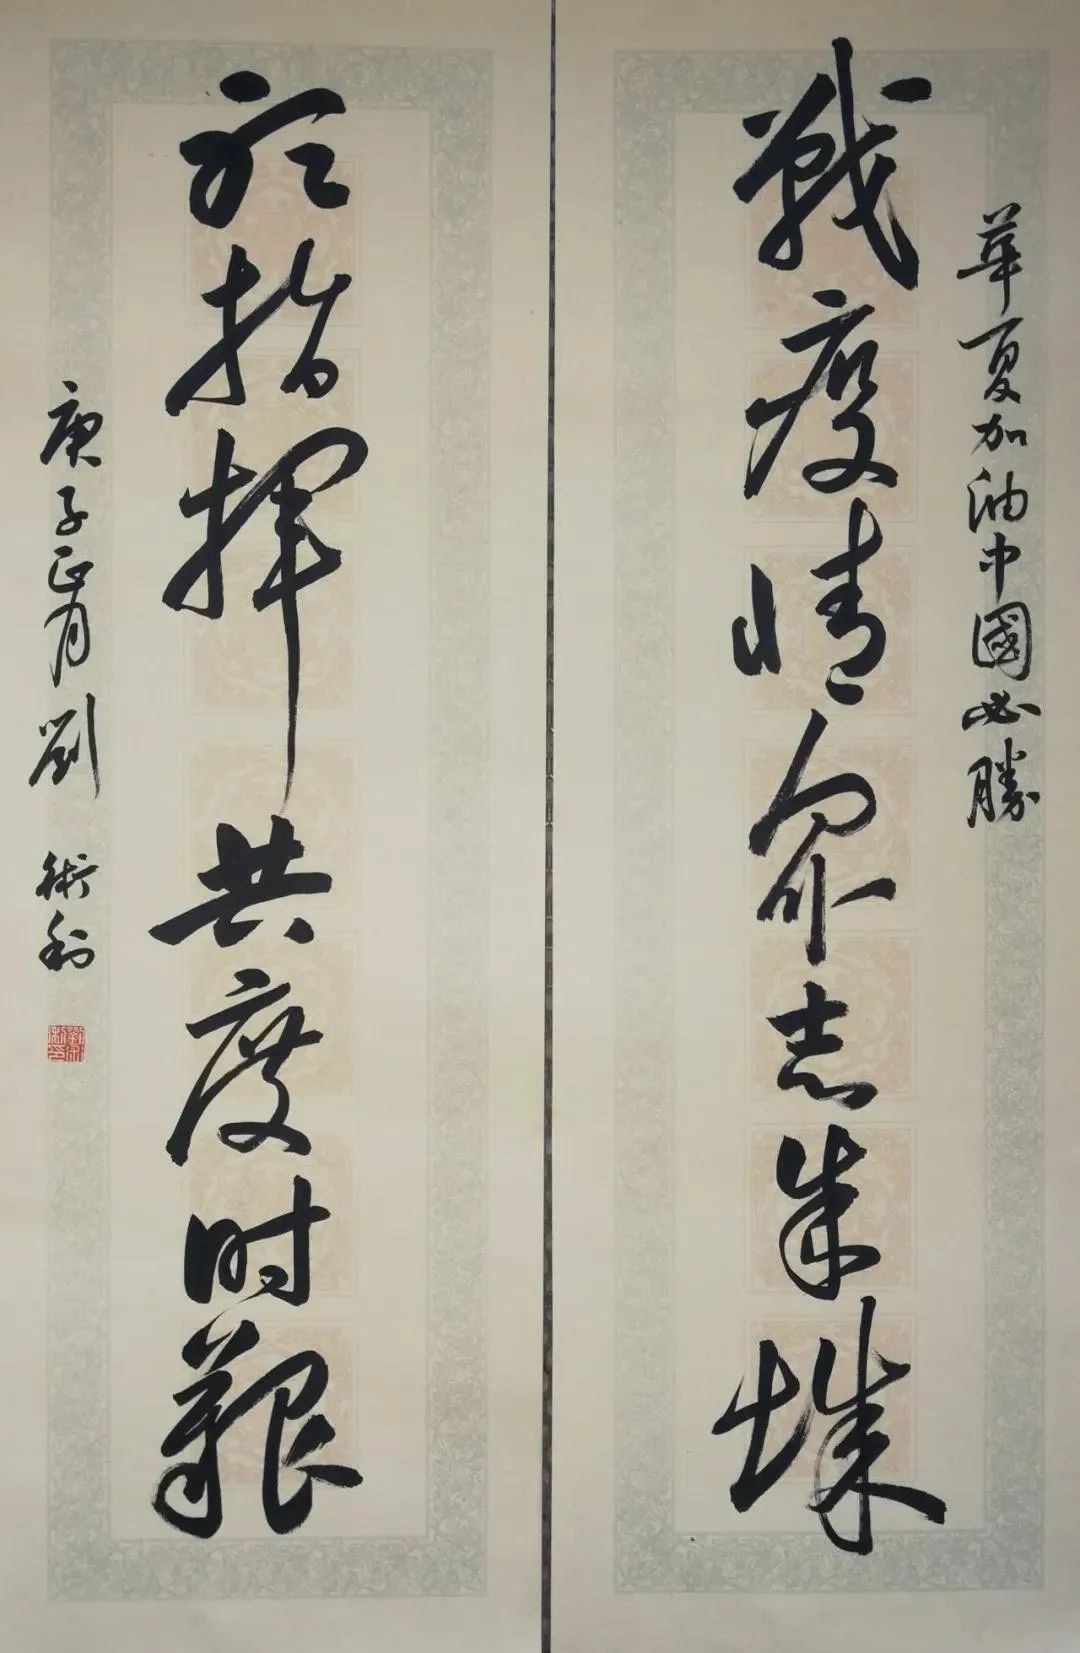 華夏加油中國必勝
戰疫情眾志成城
聽指揮共度时艱
庚子正月劉術利